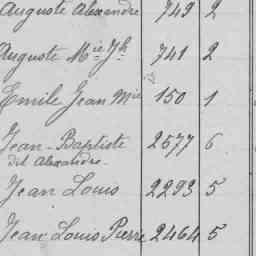 Auguste Alexandre 749 2
Auguste Mie Jh 741 2
Emile Jean Mie 150 1
Jean-Baptiste 2577 6
dit Alexandre
Jean Louis 2293 5
Jean Louis Pierre 2464 5